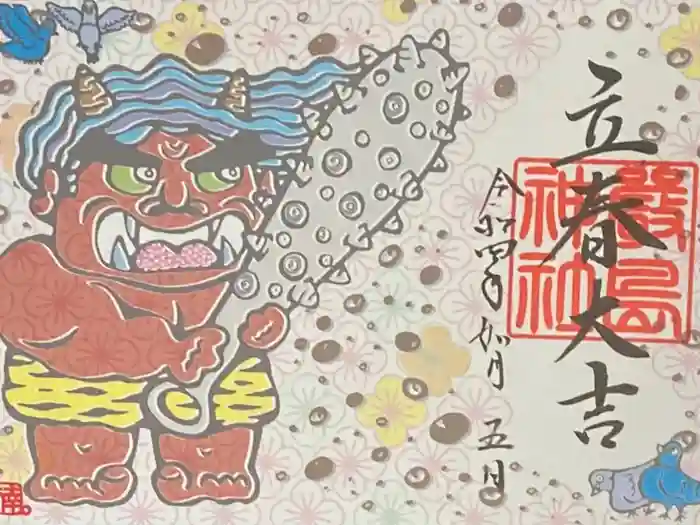 立春大吉
厳島
神社
令和四年如月五日